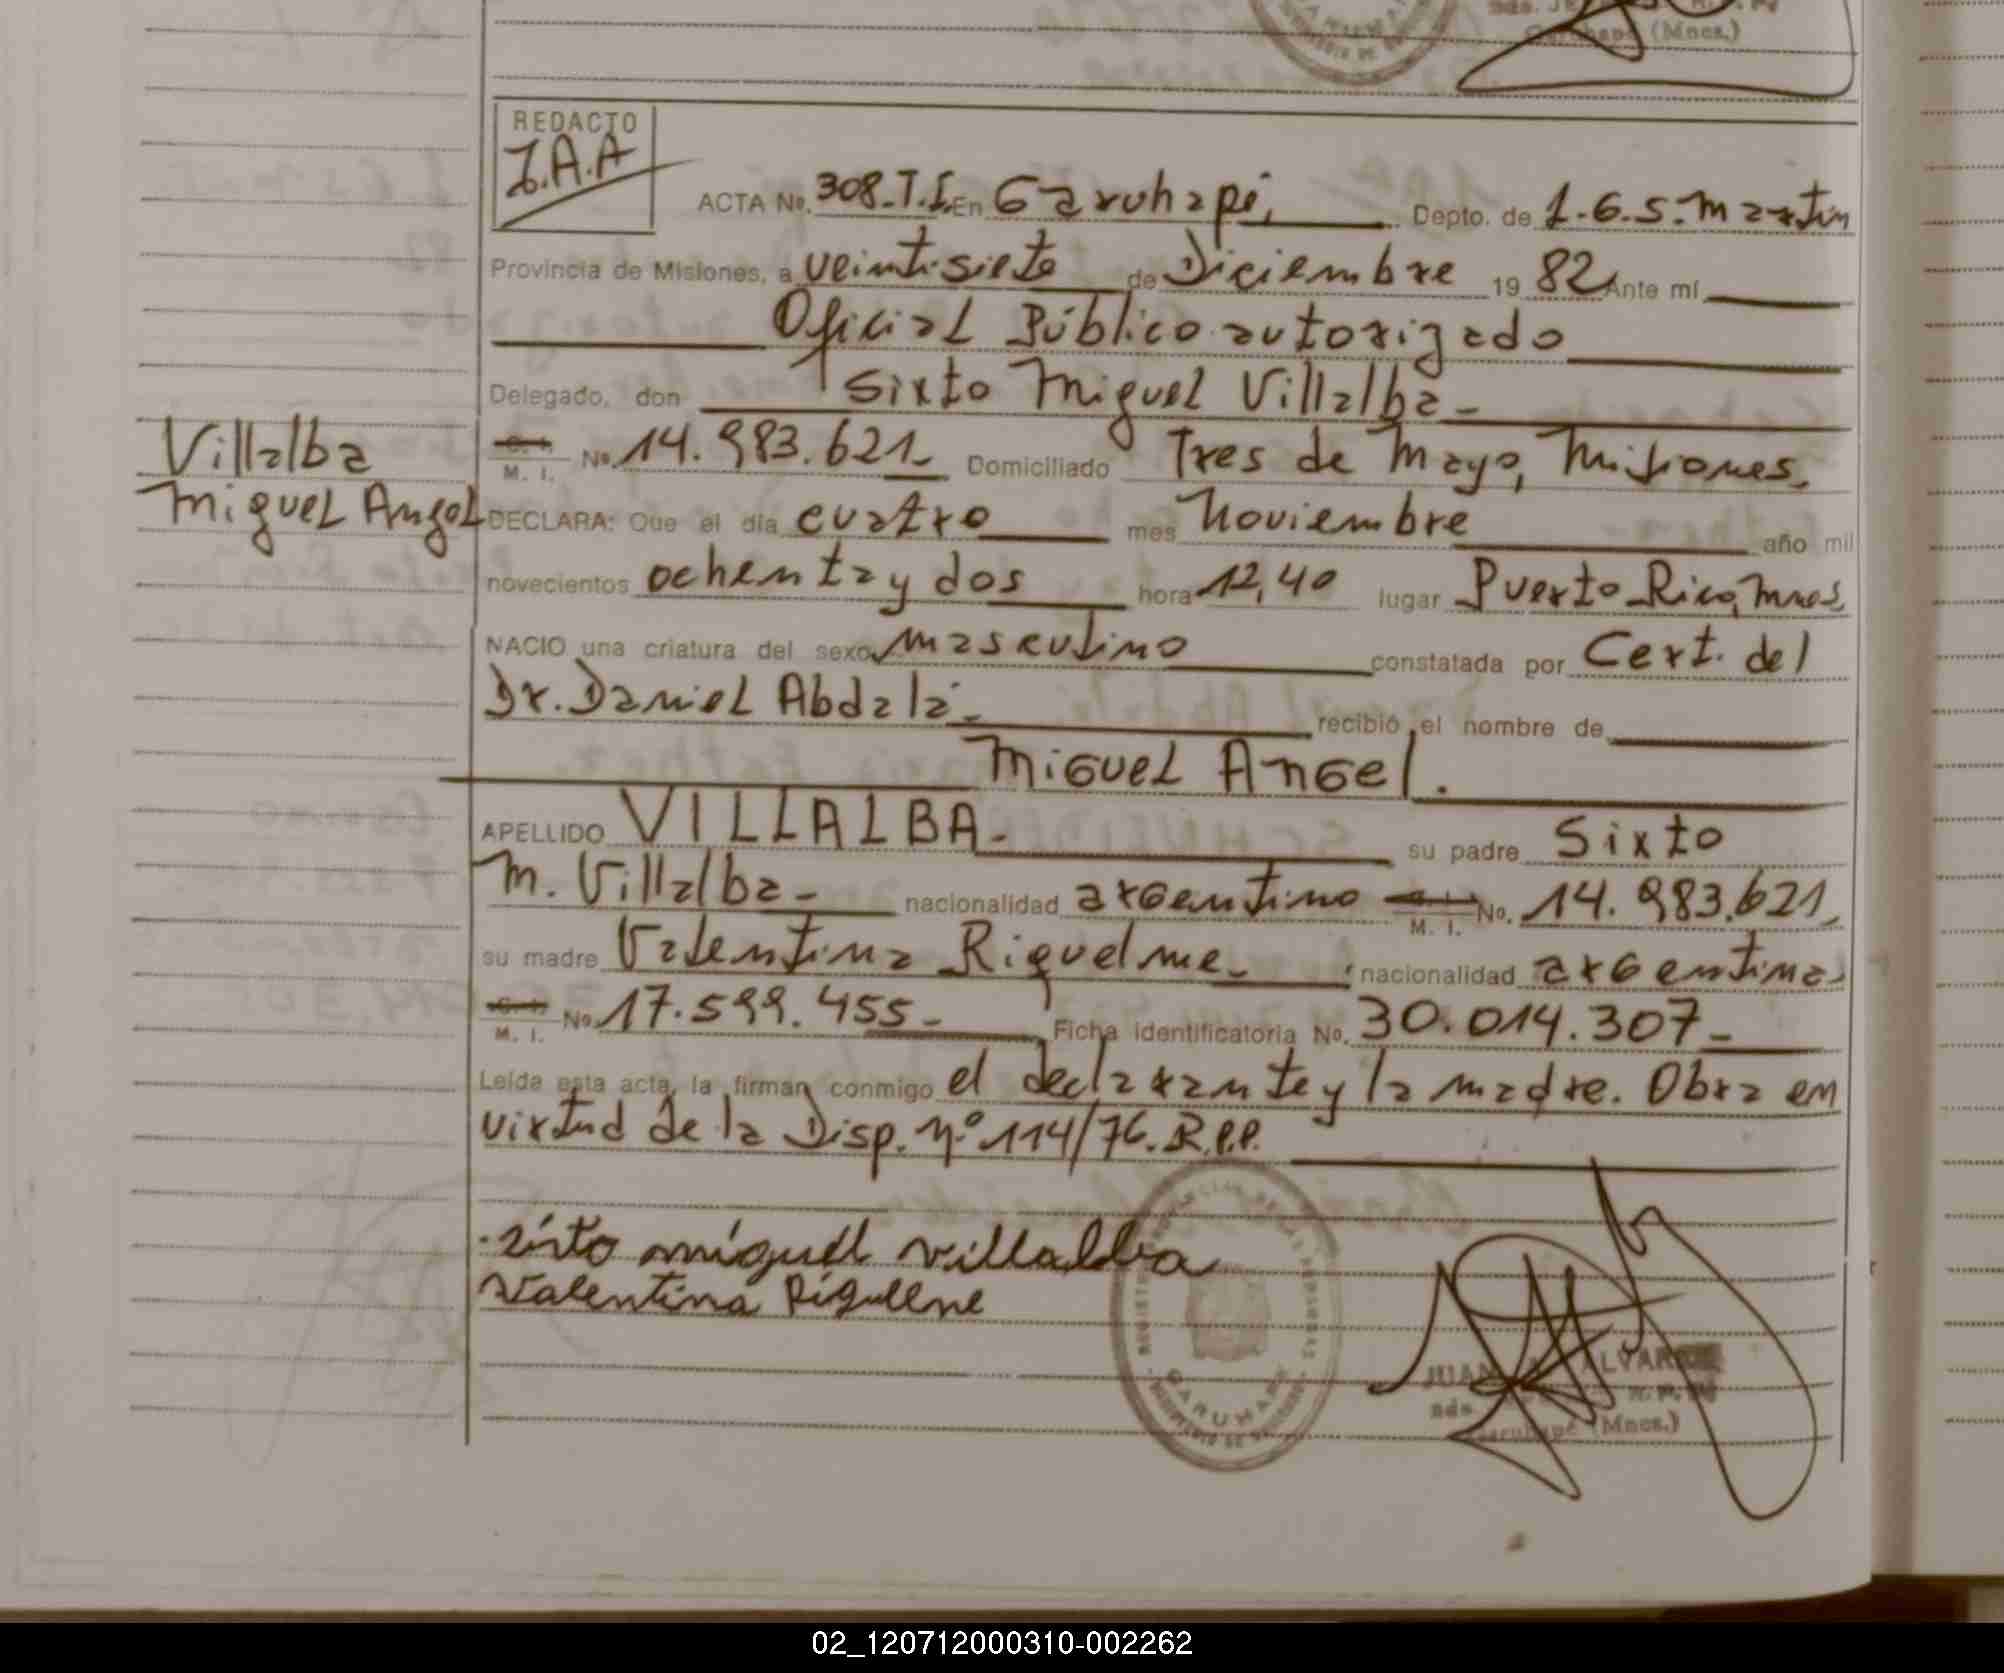 Garuhapé (Mnes.)
REDACTO
J.A.A
ACTA No. 308.T.I. En Garuhapé, Depto. de L.G.S.Martín
Provincia de Misiones, a veintisiete de Diciembre 1982 Ante mí
Oficial Público autorizado
Delegado, don Sixto Miguel Villalba-
C. I. M. I. No. 14.983.621- Domiciliado Tres de Mayo, Misiones.
Villalba
Miguel Angel
DECLARA: Que el día cuatro mes Noviembre año mil
novecientos ochenta y dos hora 12,40 lugar Puerto Rico, Mnes,
NACIO una criatura del sexo masculino constatada por Cert. del
Dr. Daniel Abdalá- recibió el nombre de
Miguel Angel.
APELLIDO VILLALBA- su padre Sixto
M. Villalba- nacionalidad argentino C. I. M. I. No. 14.983.621,
su madre Valentina Riquelme- , nacionalidad argentina
C. I. M. I. No. 17.599.455- Ficha identificatoria No. 30.014.307-
Leída esta acta, la firman conmigo el declarante y la madre. Obra en
virtud de la Disp. N.° 114/76. R.P.P.
sixto miguel villalba
Valentina Riguelme
GARUHAPE
JUAN ALVAREZ
Garuhapé (Mnes.)
02_120712000310-002262